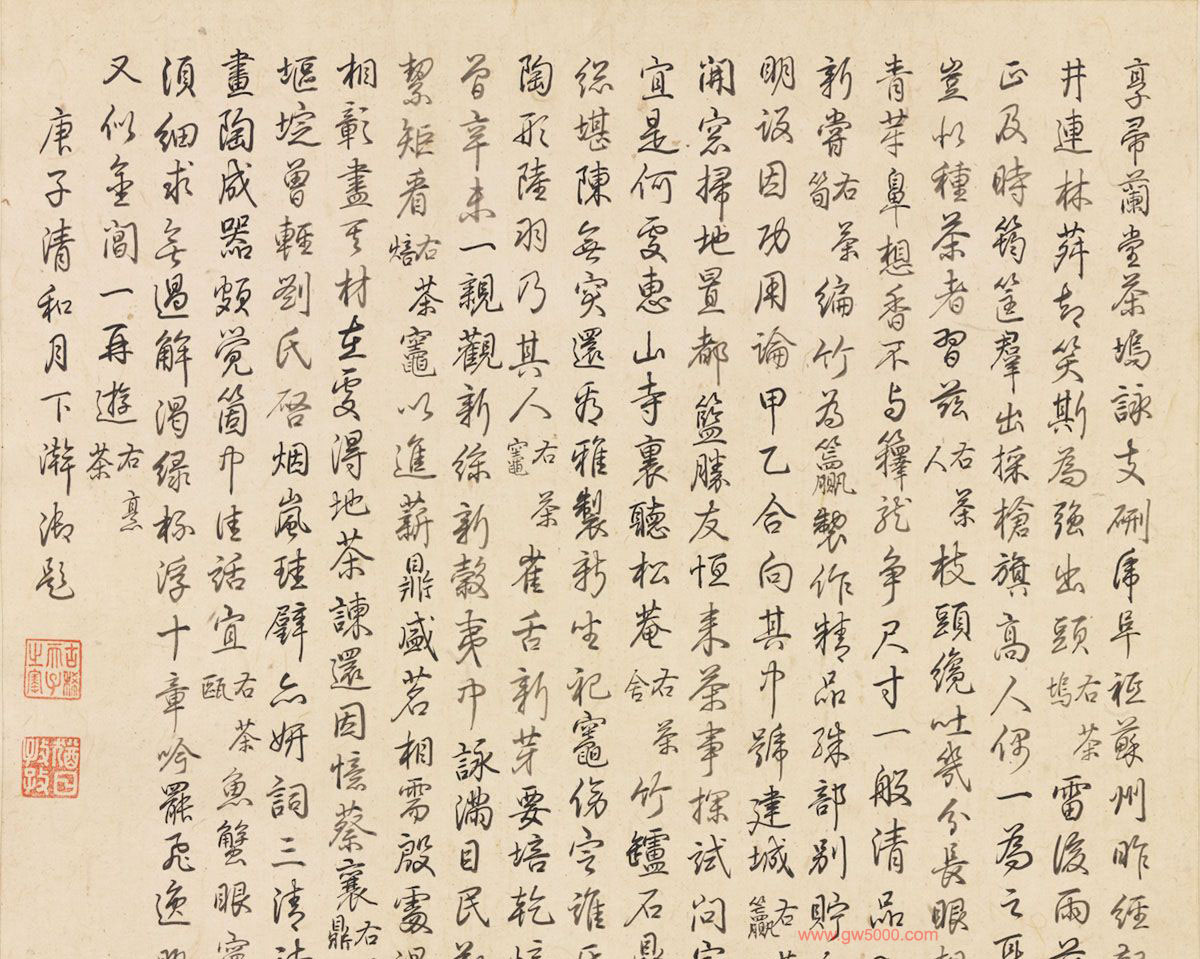 享帚蘭堂茶塢詠支硎虎阜祗蘇州昨經
井連林薜却笑斯為強出頭右茶塢雷後雨前
正及時筠筐羣出採槍旗高人偶一為之耳
豈似種茶者習茲右茶人枝頭纔吐幾分長眼
青芽鼻想香不与籜龍爭尺寸一般清品
新嘗右茶筍編竹為籯製作精品殊部別貯
明設因功用論甲乙合向其中號建城右茶籯
開窓掃地置都籃勝友恒来茶事探試問
宜是何處惠山寺裏聽松菴右茶舍竹鑪石鼎
總堪陳無突還為雅製新坐祀竈傍定誰
陶形陸羽乃其人右茶竈雀舌新芽要培乾
曾卒未一親觀新絲新穀夷中詠滿目民
絜矩看右茶焙竈以進薪鼎盛茗相需殷處
相彰盡其材在處得地茶諫還因憶蔡襄右鼎
堰埞曾輕劉氏啓烟嵐珪璧亦妍詞三清
畫陶成器頗覺箇中佳話宜右茶甌魚蟹眼
須細求無過解渴緑杯浮十章吟罷飛逸
又似金閶一再遊右烹茶
庚子清和月下澣御題
古稀天子之寶
猶日孜孜
www.gw5000.com